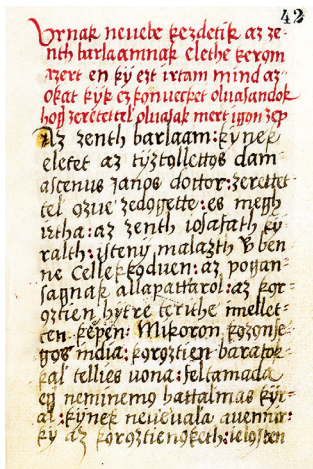 42
Vrnak neuebe kezdetik az ze-
nth barlaamnak elethe kerom
azert en ky ezt irtam mind az-
okat kyk ez konuecket oluasandok
hog zeretettel oluasak mert igon zep
Az zenth barlaam: kynek
eletet az tyztollettos dam-
ascenus janos doctor: zeretet-
tel ozue zedogette: es megh
irtha: az zenth iosafath ky-
ralth: isteny malazth v ben
ne cellekkoduen: az pogan-
sagnak allapattarol: az ker-
oztien hytre terithe mellet-
ten kepen: Mikoron kozonse-
gos india: koroztien baratok-
kal tellies uona: feltamada
eg neminemo hattalmas kyr-
al: kynek neueuala auennir:
ky az koroztienoketh: ielosten